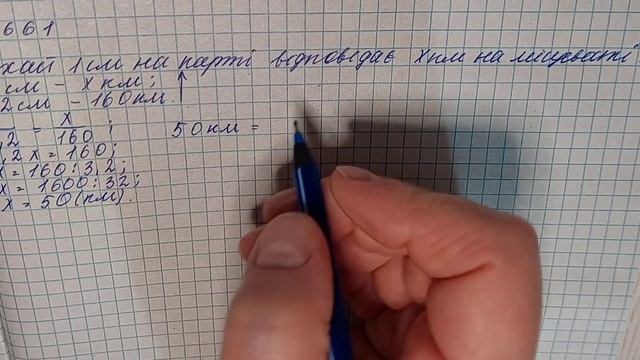 661
хай 1 см на карті відповідає x км на місцевості
см – x км;
2 см – 160 км.
= x
,2 160 ;
,2 x = 160;
x = 160 : 3,2;
x = 1600 : 32;
x = 50 (км).
50 км =